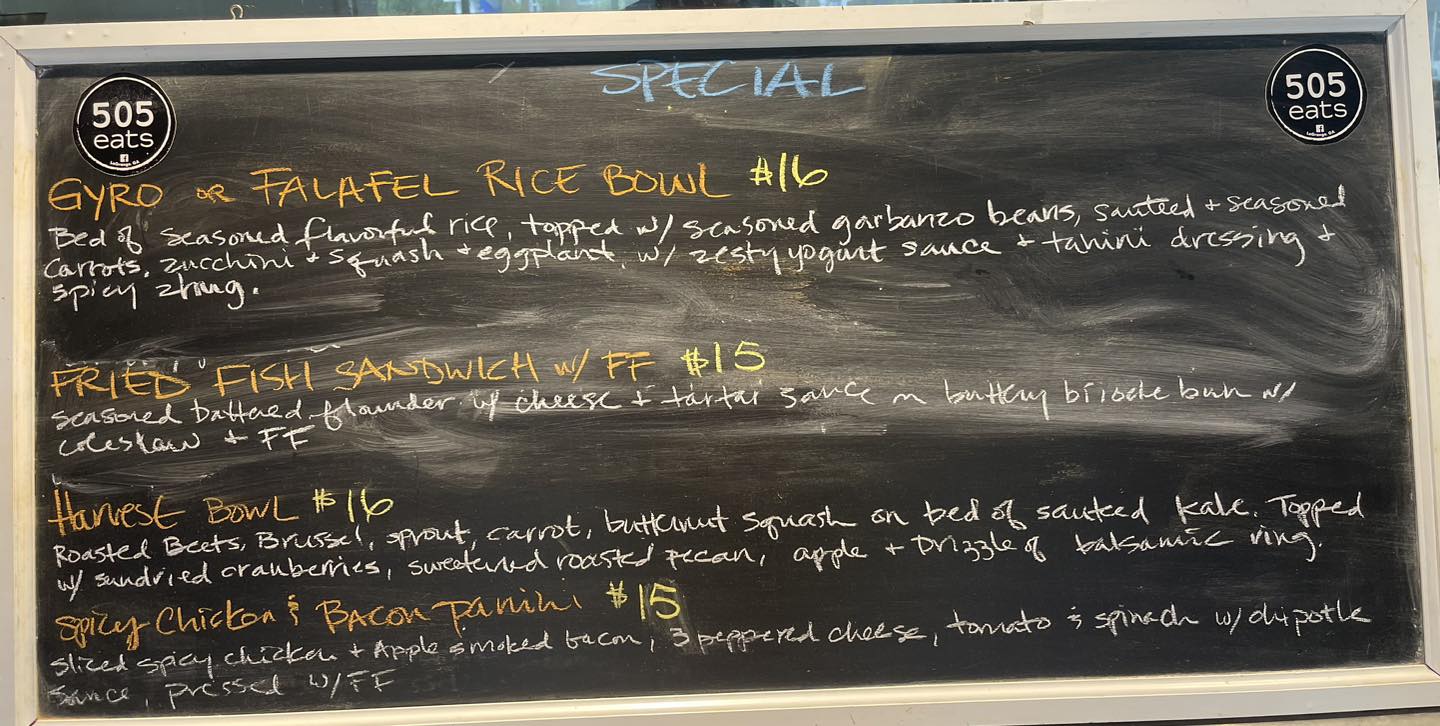 SPECIAL
505
eats
LaGrange, GA
505
eats
LaGrange, GA
GYRO OR FALAFEL RICE BOWL $16
Bed of seasoned flavorful rice, topped w/ seasoned garbanzo beans, sauteed + seasoned
carrots, zucchini + squash + eggplant, w/ zesty yogurt sauce + tahini dressing +
spicy zhug.
FRIED FISH SANDWICH w/ FF $15
seasoned battered flounder w/ cheese + tartar sauce on buttery brioche bun w/
coleslaw + FF
Harvest Bowl $16
Roasted Beets, Brussel, sprout, carrot, butternut squash on bed of sauteed kale. Topped
w/ sundried cranberries, sweetened roasted pecan, apple + Drizzle of balsamic ring.
Spicy Chicken & Bacon Panini $15
sliced spicy chicken + Apple smoked bacon, 3 peppered cheese, tomato & spinach w/ chipotle
sauce, pressed w/FF